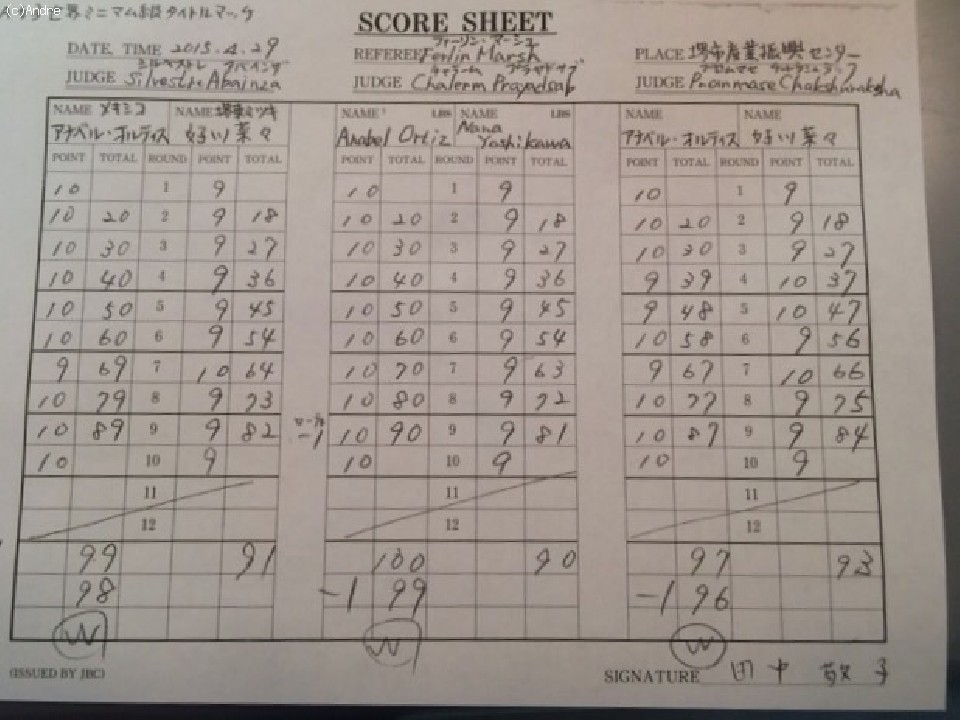 (c)Andre
ミニマム級タイトルマッチ
SCORE SHEET
DATE, TIME 2015.4.29
REFEREE Ferlin Marsh
PLACE 堺市産業振興センター
JUDGE Silvestre Abainza
JUDGE Chalerm Prayadsab
JUDGE Pinit
NAME メキシコ NAME
アナベル・オルティス 好川菜々
POINT TOTAL ROUND POINT TOTAL
10 1 9
10 20 2 9 18
10 30 3 9 27
10 40 4 9 36
10 50 5 9 45
10 60 6 9 54
9 69 7 10 64
10 79 8 9 73
10 89 9 9 82
10 10 9
11
12
99 91
98
W
NAME LBS NAME LBS
Anabel Ortiz Nana Yoshikawa
POINT TOTAL ROUND POINT TOTAL
10 1 9
10 20 2 9 18
10 30 3 9 27
10 40 4 9 36
10 50 5 9 45
10 60 6 9 54
10 70 7 9 63
10 80 8 9 72
-1 10 90 9 9 81
10 10 9
11
12
100 90
-1 99
W
NAME NAME
アナベル・オルティス 好川菜々
POINT TOTAL ROUND POINT TOTAL
10 1 9
10 20 2 9 18
10 30 3 9 27
9 39 4 10 37
9 48 5 10 47
10 58 6 9 56
9 67 7 10 66
10 77 8 9 75
10 87 9 9 84
10 10 9
11
12
97 93
-1 96
W
(ISSUED BY JBC)
SIGNATURE 田中